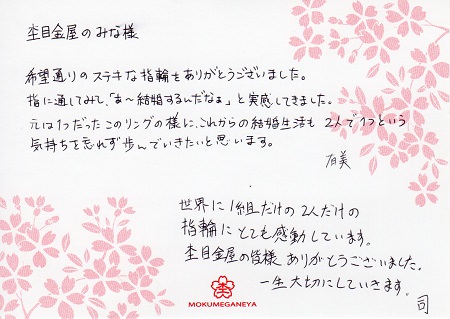 杢目金屋のみな様
希望通りのステキな指輪をありがとうございました。
指に通してみて、「あ〜結婚するんだなぁ」と実感してきました。
元は1つだったこのリングの様に、これからの結婚生活も 2人で1つという
気持ちを忘れず歩んでいきたいと思います。
世界に1組だけの2人だけの
指輪にとても感動しています。
杢目金屋の皆様 ありがとうございました。
一生大切にしていきます。
司
MOKUMEGANEYA